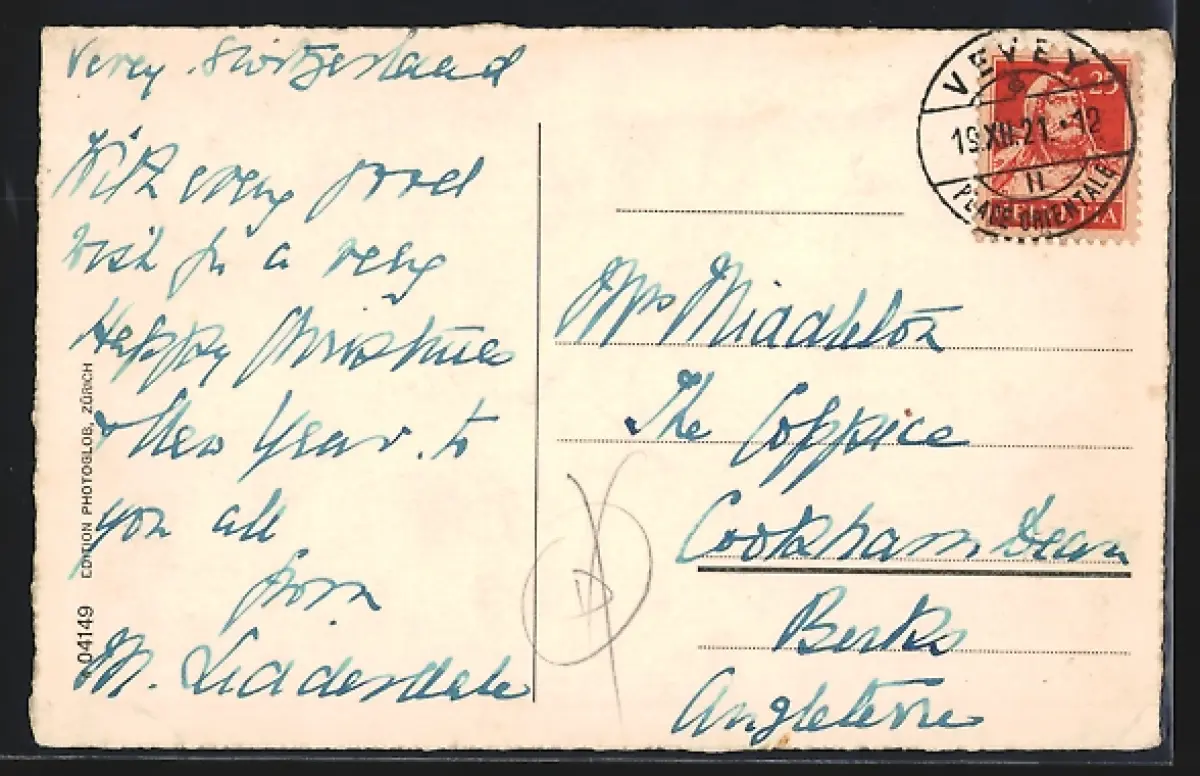 Vevey. Switzerland
With every good
wish for a very
Happy Christmas
& New Year. to
you all
from
M. Lidderdale
EDITION PHOTOGLOB, ZÜRICH
04149
VEVEY
19.XII.21.•12
II
PLACE ORIENTALE
25
HELVETIA
Mrs Middleton
The Coppice
Cookham Dean
Berks
Angleterre